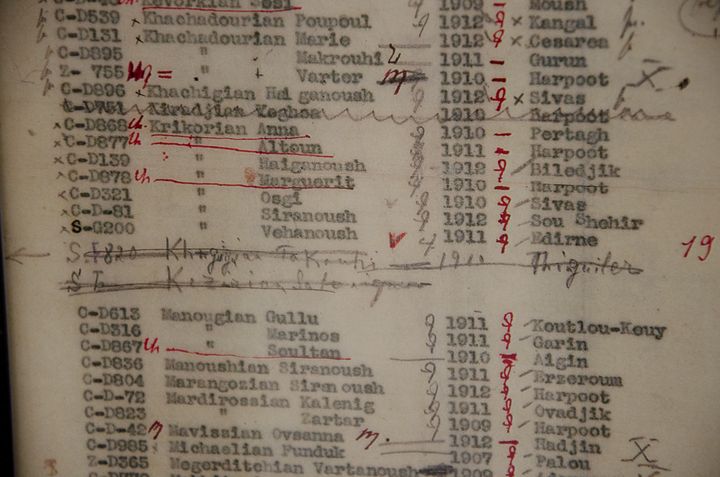 Kevorkian Sosi 1909 — Moush
C-D539 x Khachadourian Poupoul 9 1912 9 x Kangal
C-D131 x Khachadourian Marie 9 1912 9 x Cesarea
C-D895 " Makrouhi 1911 — Gurun
Z- 755 " Varter m 1910 — Harpoot X
C-D896 x Khachigian Haiganoush 9 1912 9 x Sivas
C-D751 Kiradjian Yeghsa 1910 Harpoot
x C-D868 ch Krikorian Anna 9 1910 — Pertagh
x C-D877 ch " Altoun 9 1911 — Harpoot
x C-D139 " Haiganoush 9 1912 9 Biledjik
x C-D878 ch " Marguerit 9 1910 — Harpoot
x C-D321 " Osgi 9 1910 9 Sivas
x C-D-81 " Siranoush 9 1912 9 Sou Shehir
x S-G200 " Vehanoush 9 1911 9 Edirne
19
S F820 Takouhi 1910
S
C-D613 Manougian Gullu 9 1911 9 Koutlou-Keuy
C-D316 " Marinos 9 1911 9 Garin
C-D867 ch " Soultan 1910 Aigin
C-D836 Manoushian Siranoush 9 1911 9 Erzeroum
C-D804 Marangozian Siranoush 9 1912 9 Harpoot
C-D-72 Mardirossian Kalenig 9 1911 9 Ovadjik
C-D823 " Zartar 9 1909 9 Harpoot
C-D-42 m Mavissian Ovsanna m. 1912 — Hadjin
C-D985 Michaelian Funduk 1907 Palou X
Z-D365 Megerditchian Vartanoush 1909